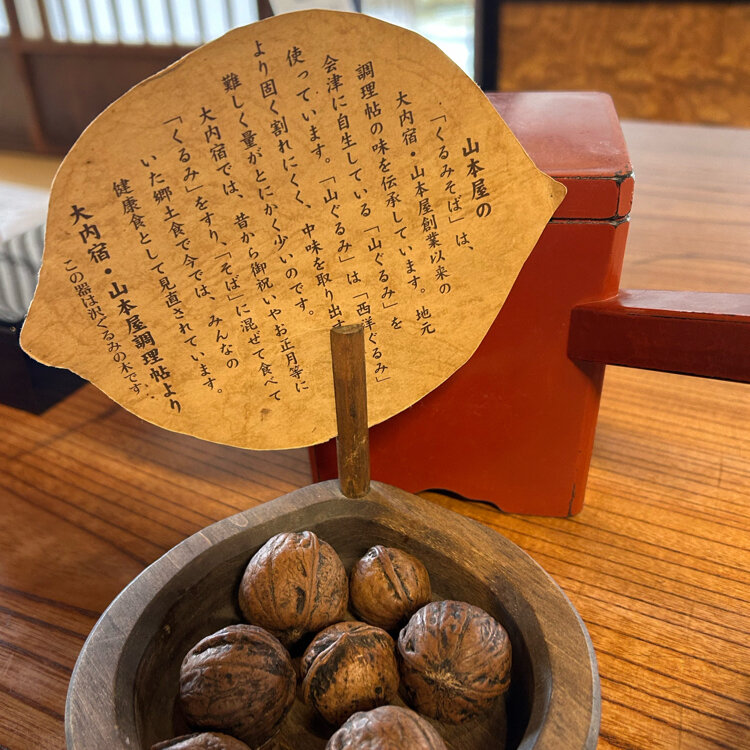 山本屋の
「くるみそば」は、
大内宿・山本屋創業以来の
調理帖の味を伝承しています。地元
会津に自生している「山ぐるみ」を
使っています。「山ぐるみ」は「西洋ぐるみ」
より固く割れにくく、中味を取り出す
難しく量がとにかく少いのです。
大内宿では、昔から御祝いやお正月等に
「くるみ」をすり、「そば」に混ぜて食べて
いた郷土食で今では、みんなの
健康食として見直されています。
大内宿・山本屋調理帖より
この器は沢ぐるみの木です。